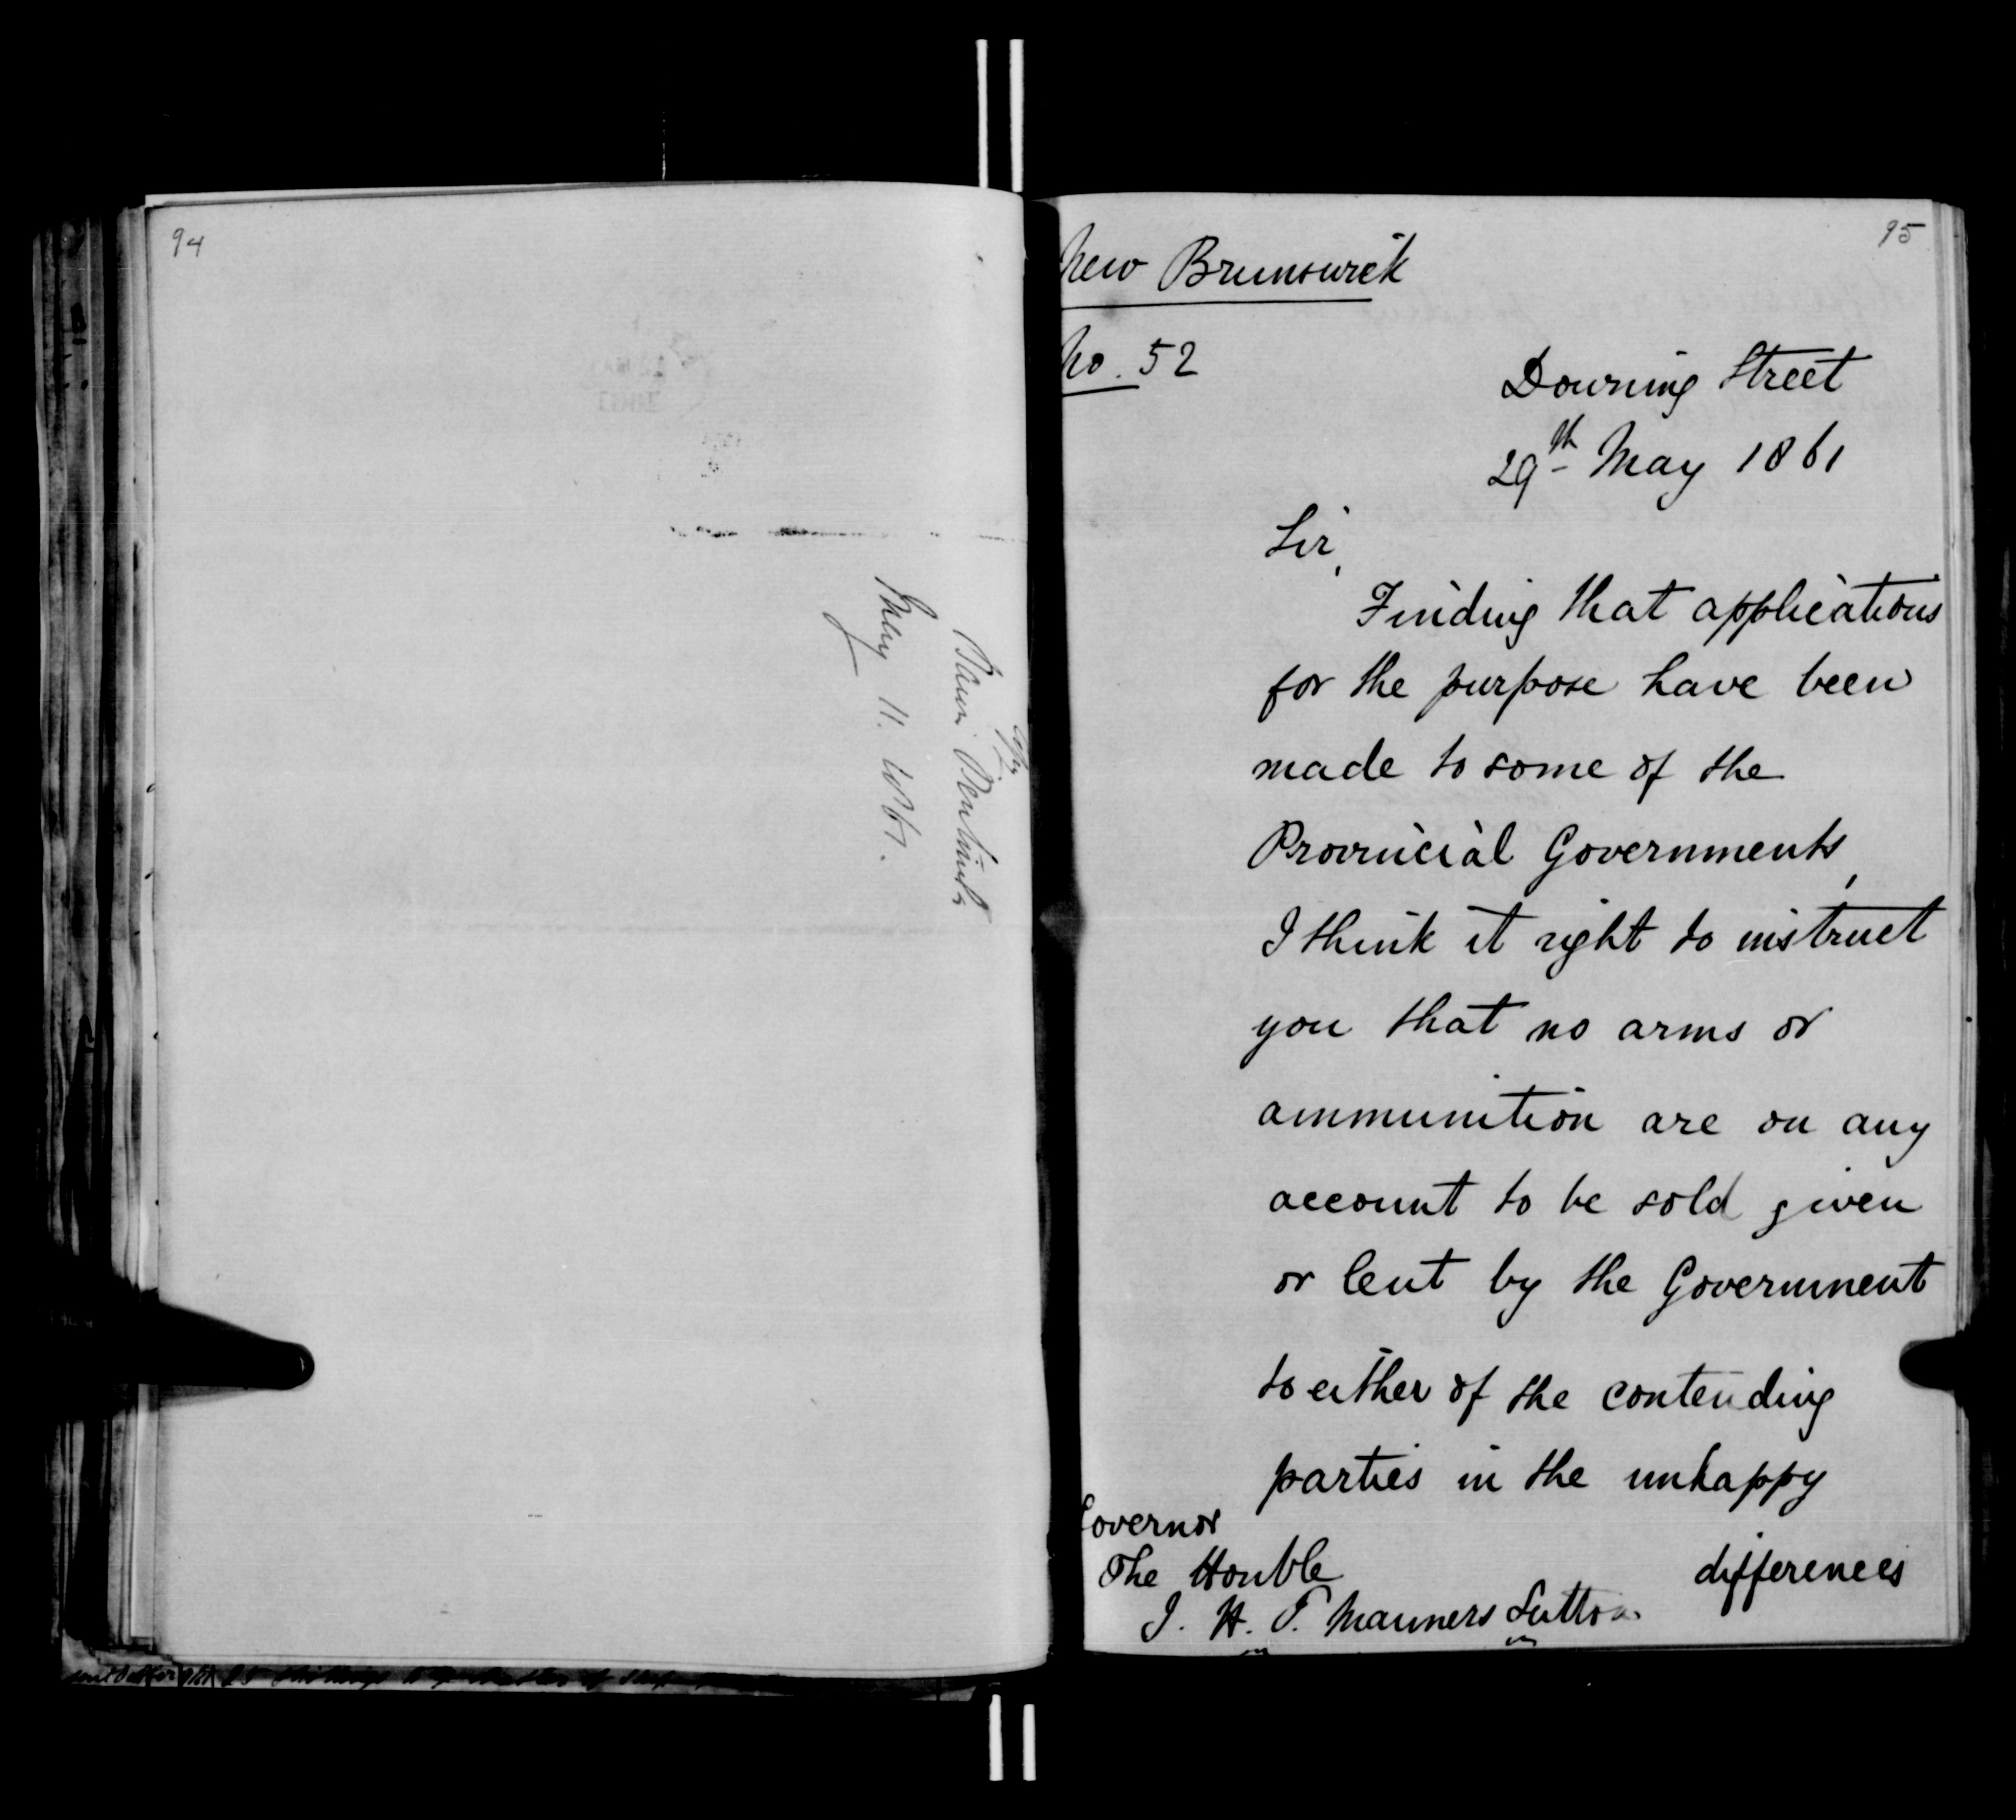 94
Copy
May 11. 1861.
95
New Brunswick
No. 52
Downing Street
29th May 1861
Sir,
Finding that applications
for the purpose have been
made to some of the
Provincial Governments,
I think it right to instruct
you that no arms or
ammunition are on any
account to be sold given
or lent by the Government
to either of the contending
parties in the unhappy
differences
Governor
The Honble
J. H. T. Manners Sutton